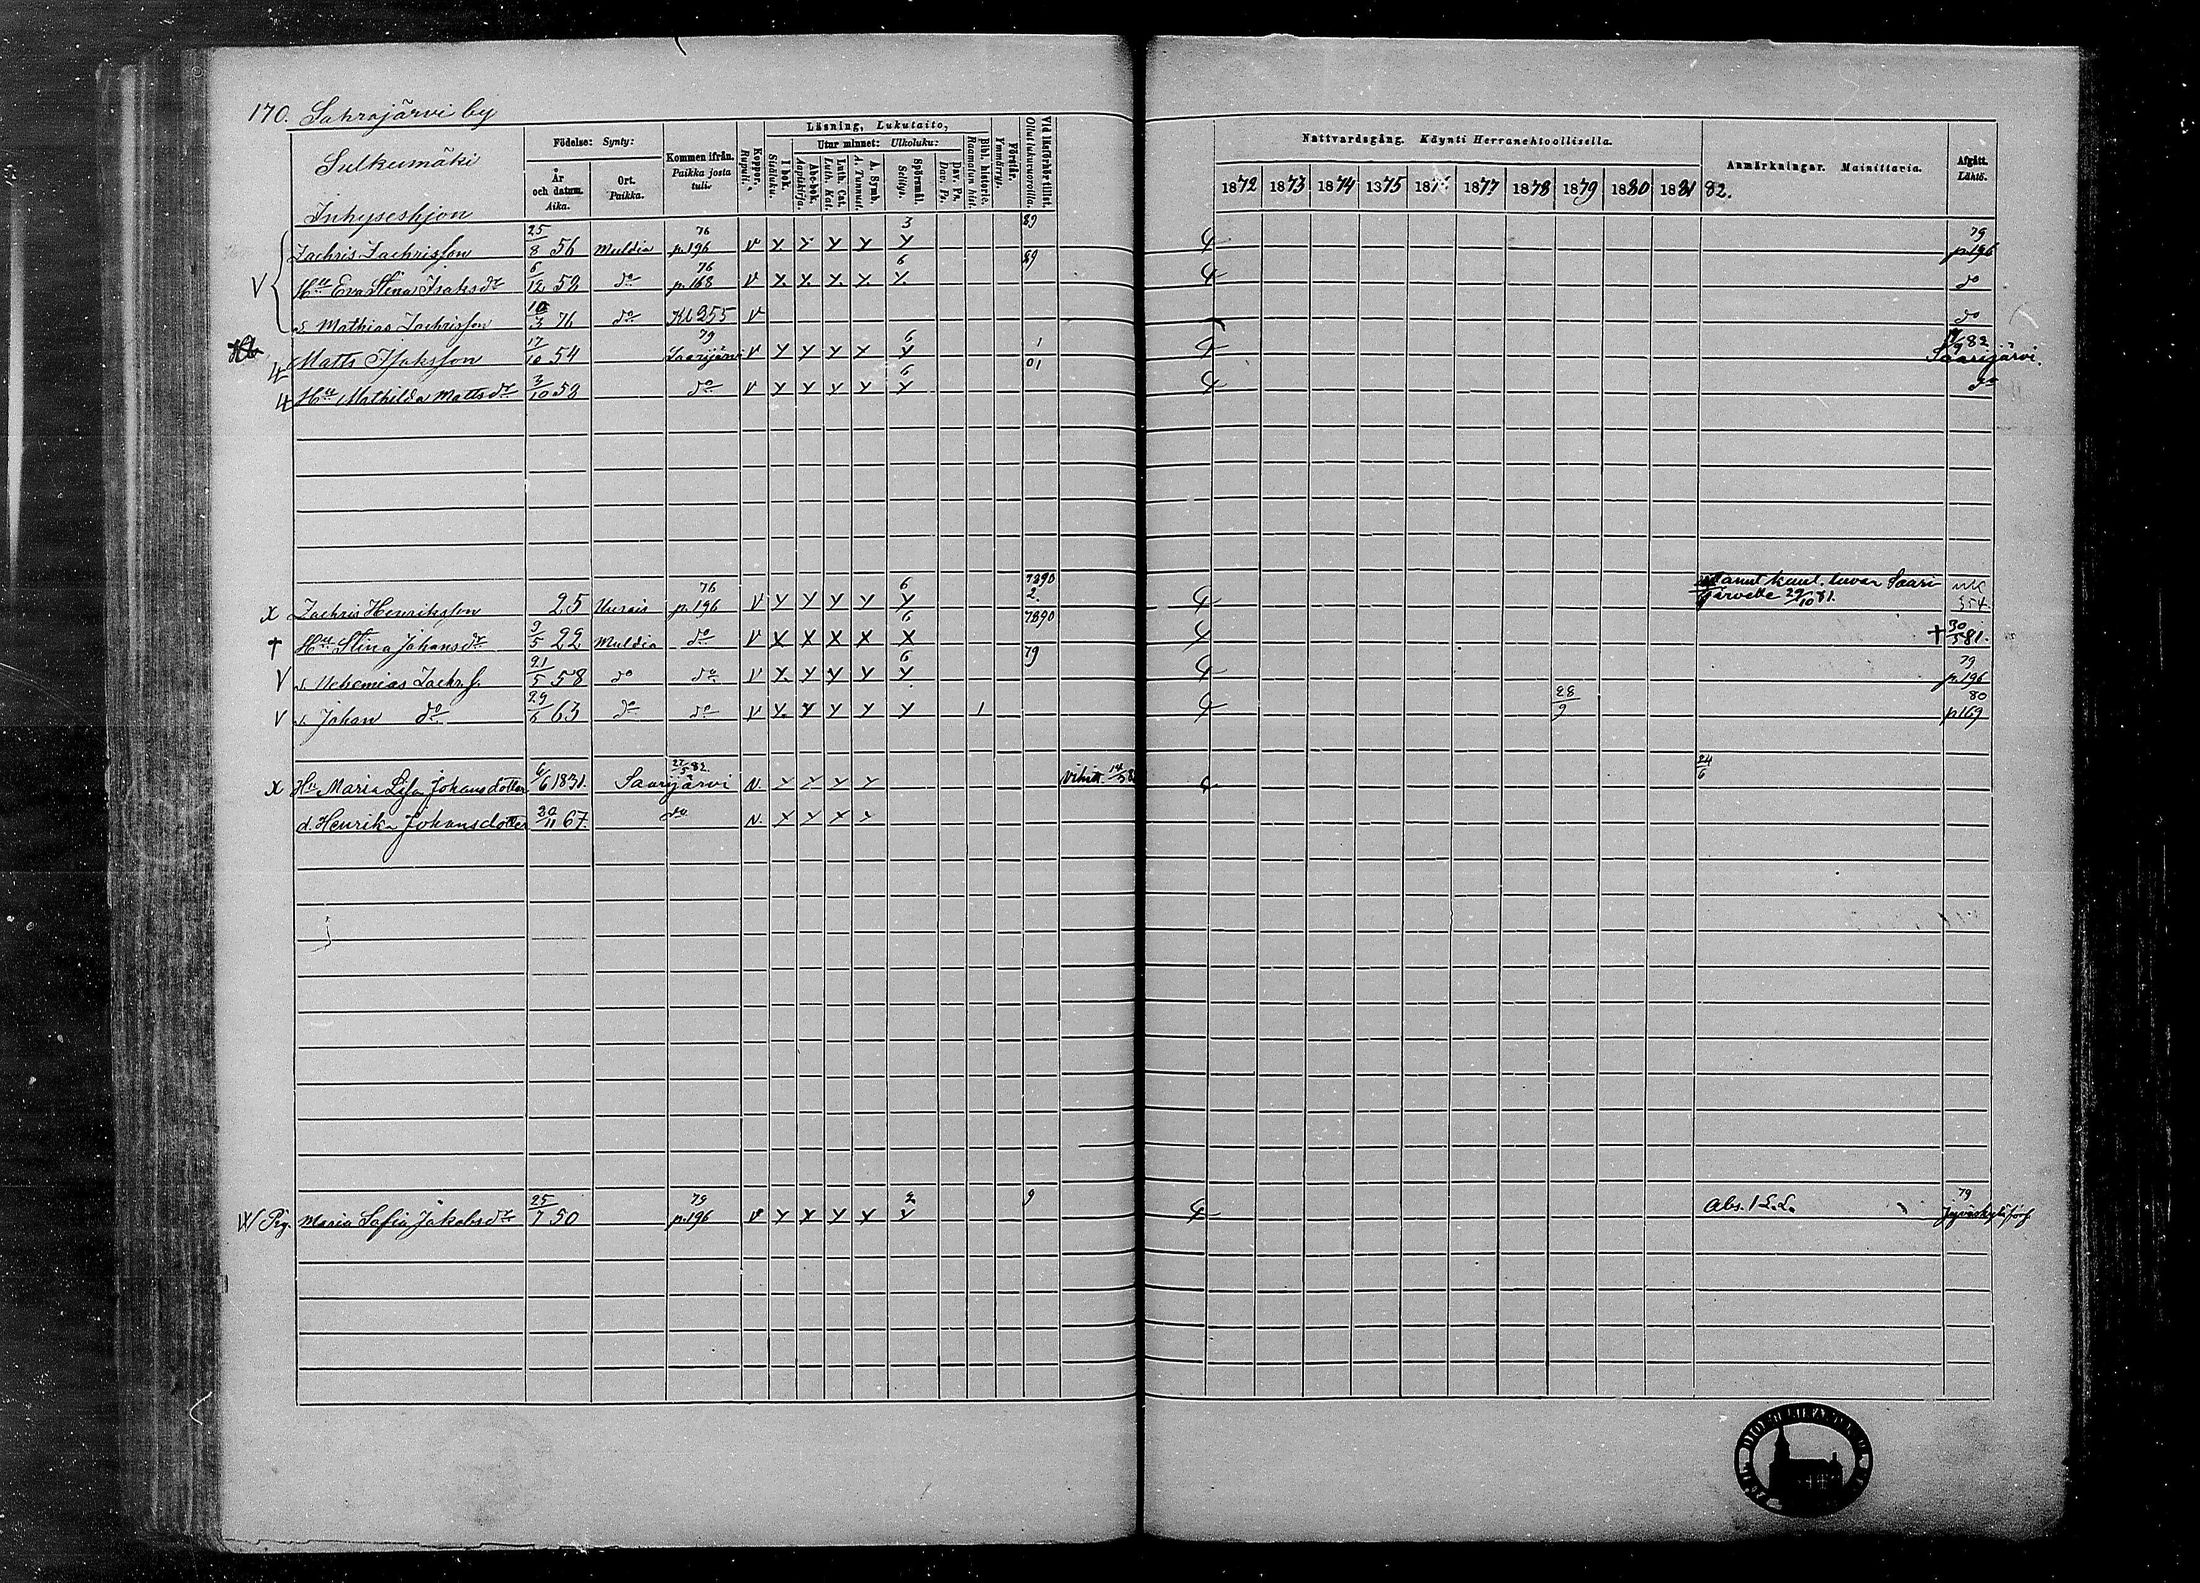 170. Sahrajärvi by
Sulkumäki
Födelse: Synty:
År och datum. Aika.
Ort. Paikka.
Kommen ifrån. Paikka josta tuli.
Koppor. Rupuli.
Läsning, Lukutaito,
I bok. Sisäluku.
Utur minnet: Ulkoluku:
Abc-bok. Aapiskirja.
Luth. Cat. Luth. Kat.
A. Symb. A. Tunnust.
Spörsmål. Selitys.
Dav. Ps. Dav. Ps.
Bibl. historie. Raamatun hist.
Förstår. Ymmärrys.
Vid läsförhör tillst. Ollut lukuvuorolla.
Nattvardsgång. Käynti Herranehtoollisella.
1872 1873 1874 1875 1876 1877 1878 1879 1880 1881 82.
Anmärkningar. Mainittavia.
Afgått. Lähtö.
Inhyseshjon
V Zachris Zachrisson 25/8 56 Muldia 76 p.196 v y y y y 3 y 89 79 p.196
Hu Eva Stina Isaksdr 6/12 52 do 76 p.168 v y y y y 6 y 89 do
s. Mathias Zachrisson 10/3 76 do Kl 255 v do
Matts Isaksson 17/10 54 79 Saarijärvi v y y y y 6 y 1 82 Saarijärvi.
Hu Mathilda Mattsdr 3/10 53 do v y y y y 6 y 01 do
x Zachris Henriksson 25 Uurais 76 p.196 v y y y y 6 y 7890 2. kuul. luvan Saarijärvelle 29/10 81. 354.
† Hu Stina Johansdr 9/5 22 Muldia do v x x x x 6 x 7890 † 30/5 81.
V s. Nehemias Zachr.s. 21/5 58 do do v y y y y 6 y 79 79 p.196
V s. Johan do 29/6 63 do do v y y y y y 1 28/9 80 p169
x Hu Maria Lisa Johansdotter 6/6 1831. 27/5 82. Saarijärvi v. y y y y Vihitt. 14/5 24/6
d. Henrika Johansdotter 20/11 67. do v. y y y y
Pig. Maria Sofia Jakobsdr 25/7 50 79 p.196 v y x y x 2 y 9 Abs. 1 L.L. 79 Jyväskylä förs.